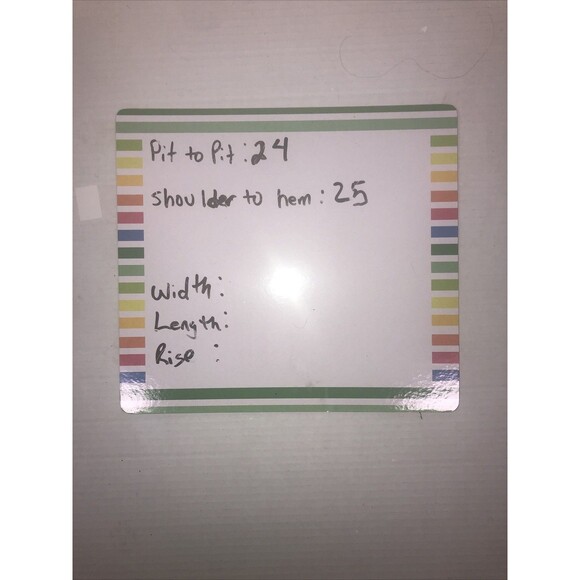 Pit to Pit : 24
Shoulder to hem : 25
Width :
Length :
Rise :